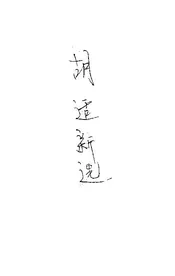 胡适新选